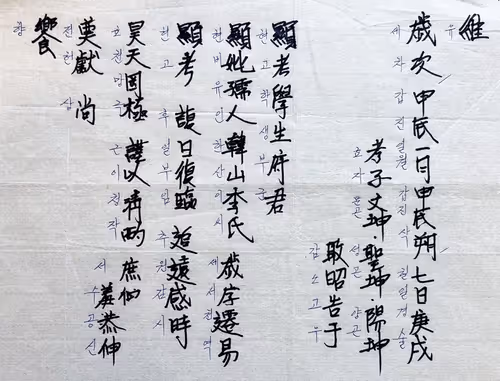 維
유
歲次 甲辰一月甲辰朔 七日庚戌
세차 갑진일월 갑진삭 칠일경술
孝子 文坤·聖坤·陽坤
효자 문곤 성곤 양곤
敢昭告于
감소고우
顯考學生府君
현고학생부군
顯妣孺人韓山李氏 歲序遷易
현비유인한산이씨 세서천역
顯考 諱日復臨 追遠感時
현고 휘일부림 추원감시
昊天罔極 謹以淸酌 庶羞恭伸
호천망극 근이청작 서수공신
奠獻 尙
전헌 상
饗
향